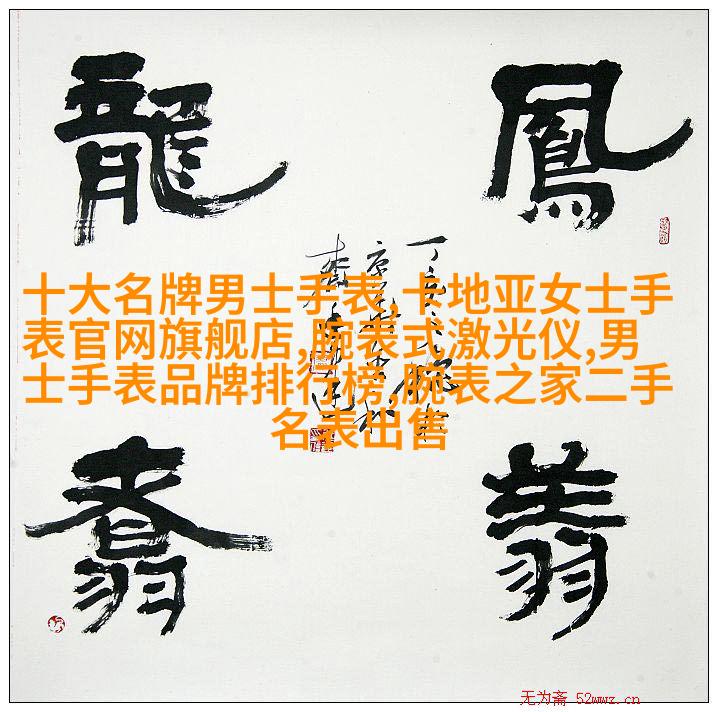 龍 鳳
十大名牌男士手表,卡地亚女士手
表官网旗舰店,腕表式激光仪,男
士手表品牌排行榜,腕表之家二手
名表出售
翥 翔
无为斋 52wwz.cn